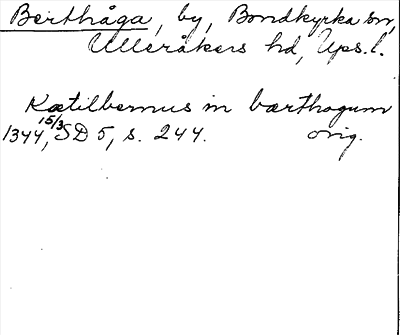 Berthåga, by, Bondkyrka sn,
Ulleråkers hd, Ups.l.
Kætilbernus in bærthagum
1344, 15/3 SD 5, s. 244. orig.